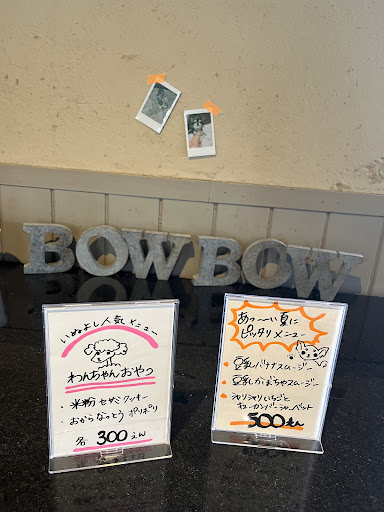 BOWBOW
いぬよし人気メニュー
わんちゃんおやつ
・米粉セサミクッキー
・おからなっとうポリポリ
各300えん
あっ〜い夏に
ピッタリメニュー
・豆乳バナナスムージー
・豆乳かぼちゃスムージー
・シャリシャリいちごと
ストロベリーシャーベット
500えん